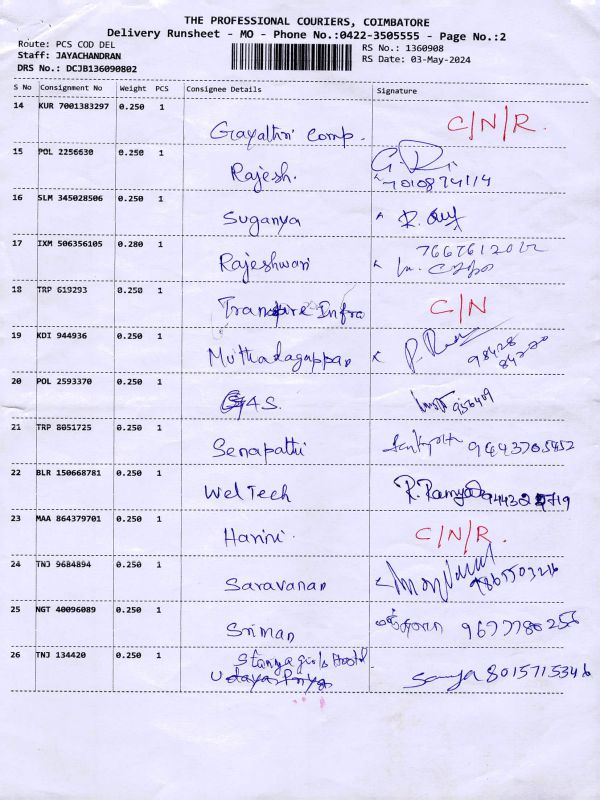 THE PROFESSIONAL COURIERS, COIMBATORE
Delivery Runsheet - MO - Phone No.:0422-3505555 - Page No.:2
Route: PCS COD DEL
Staff: JAYACHANDRAN
DRS No.: DCJB136090802
RS No.: 1360908
RS Date: 03-May-2024
S No Consignment No Weight PCS Consignee Details Signature
14 KUR 7001383297 0.250 1 Gayathri Comp. C/N/R.
15 POL 2256630 0.250 1 Rajesh. 7010874114
16 SLM 345028506 0.250 1 Suganya
17 IXM 506356105 0.280 1 Rajeshwari
18 TRP 619293 0.250 1 Infra C/N
19 KDI 944936 0.250 1 Muthadagappan 98428
20 POL 2593370 0.250 1
21 TRP 8051725 0.250 1 Senapathi
22 BLR 150668781 0.250 1 WelTech R. Ramya
23 MAA 864379701 0.250 1 Harini. C/N/R.
24 TNJ 9684894 0.250 1 Saravanan
25 NGT 40096089 0.250 1 Sriman
26 TNJ 134420 0.250 1 girls Hostel 8015715346